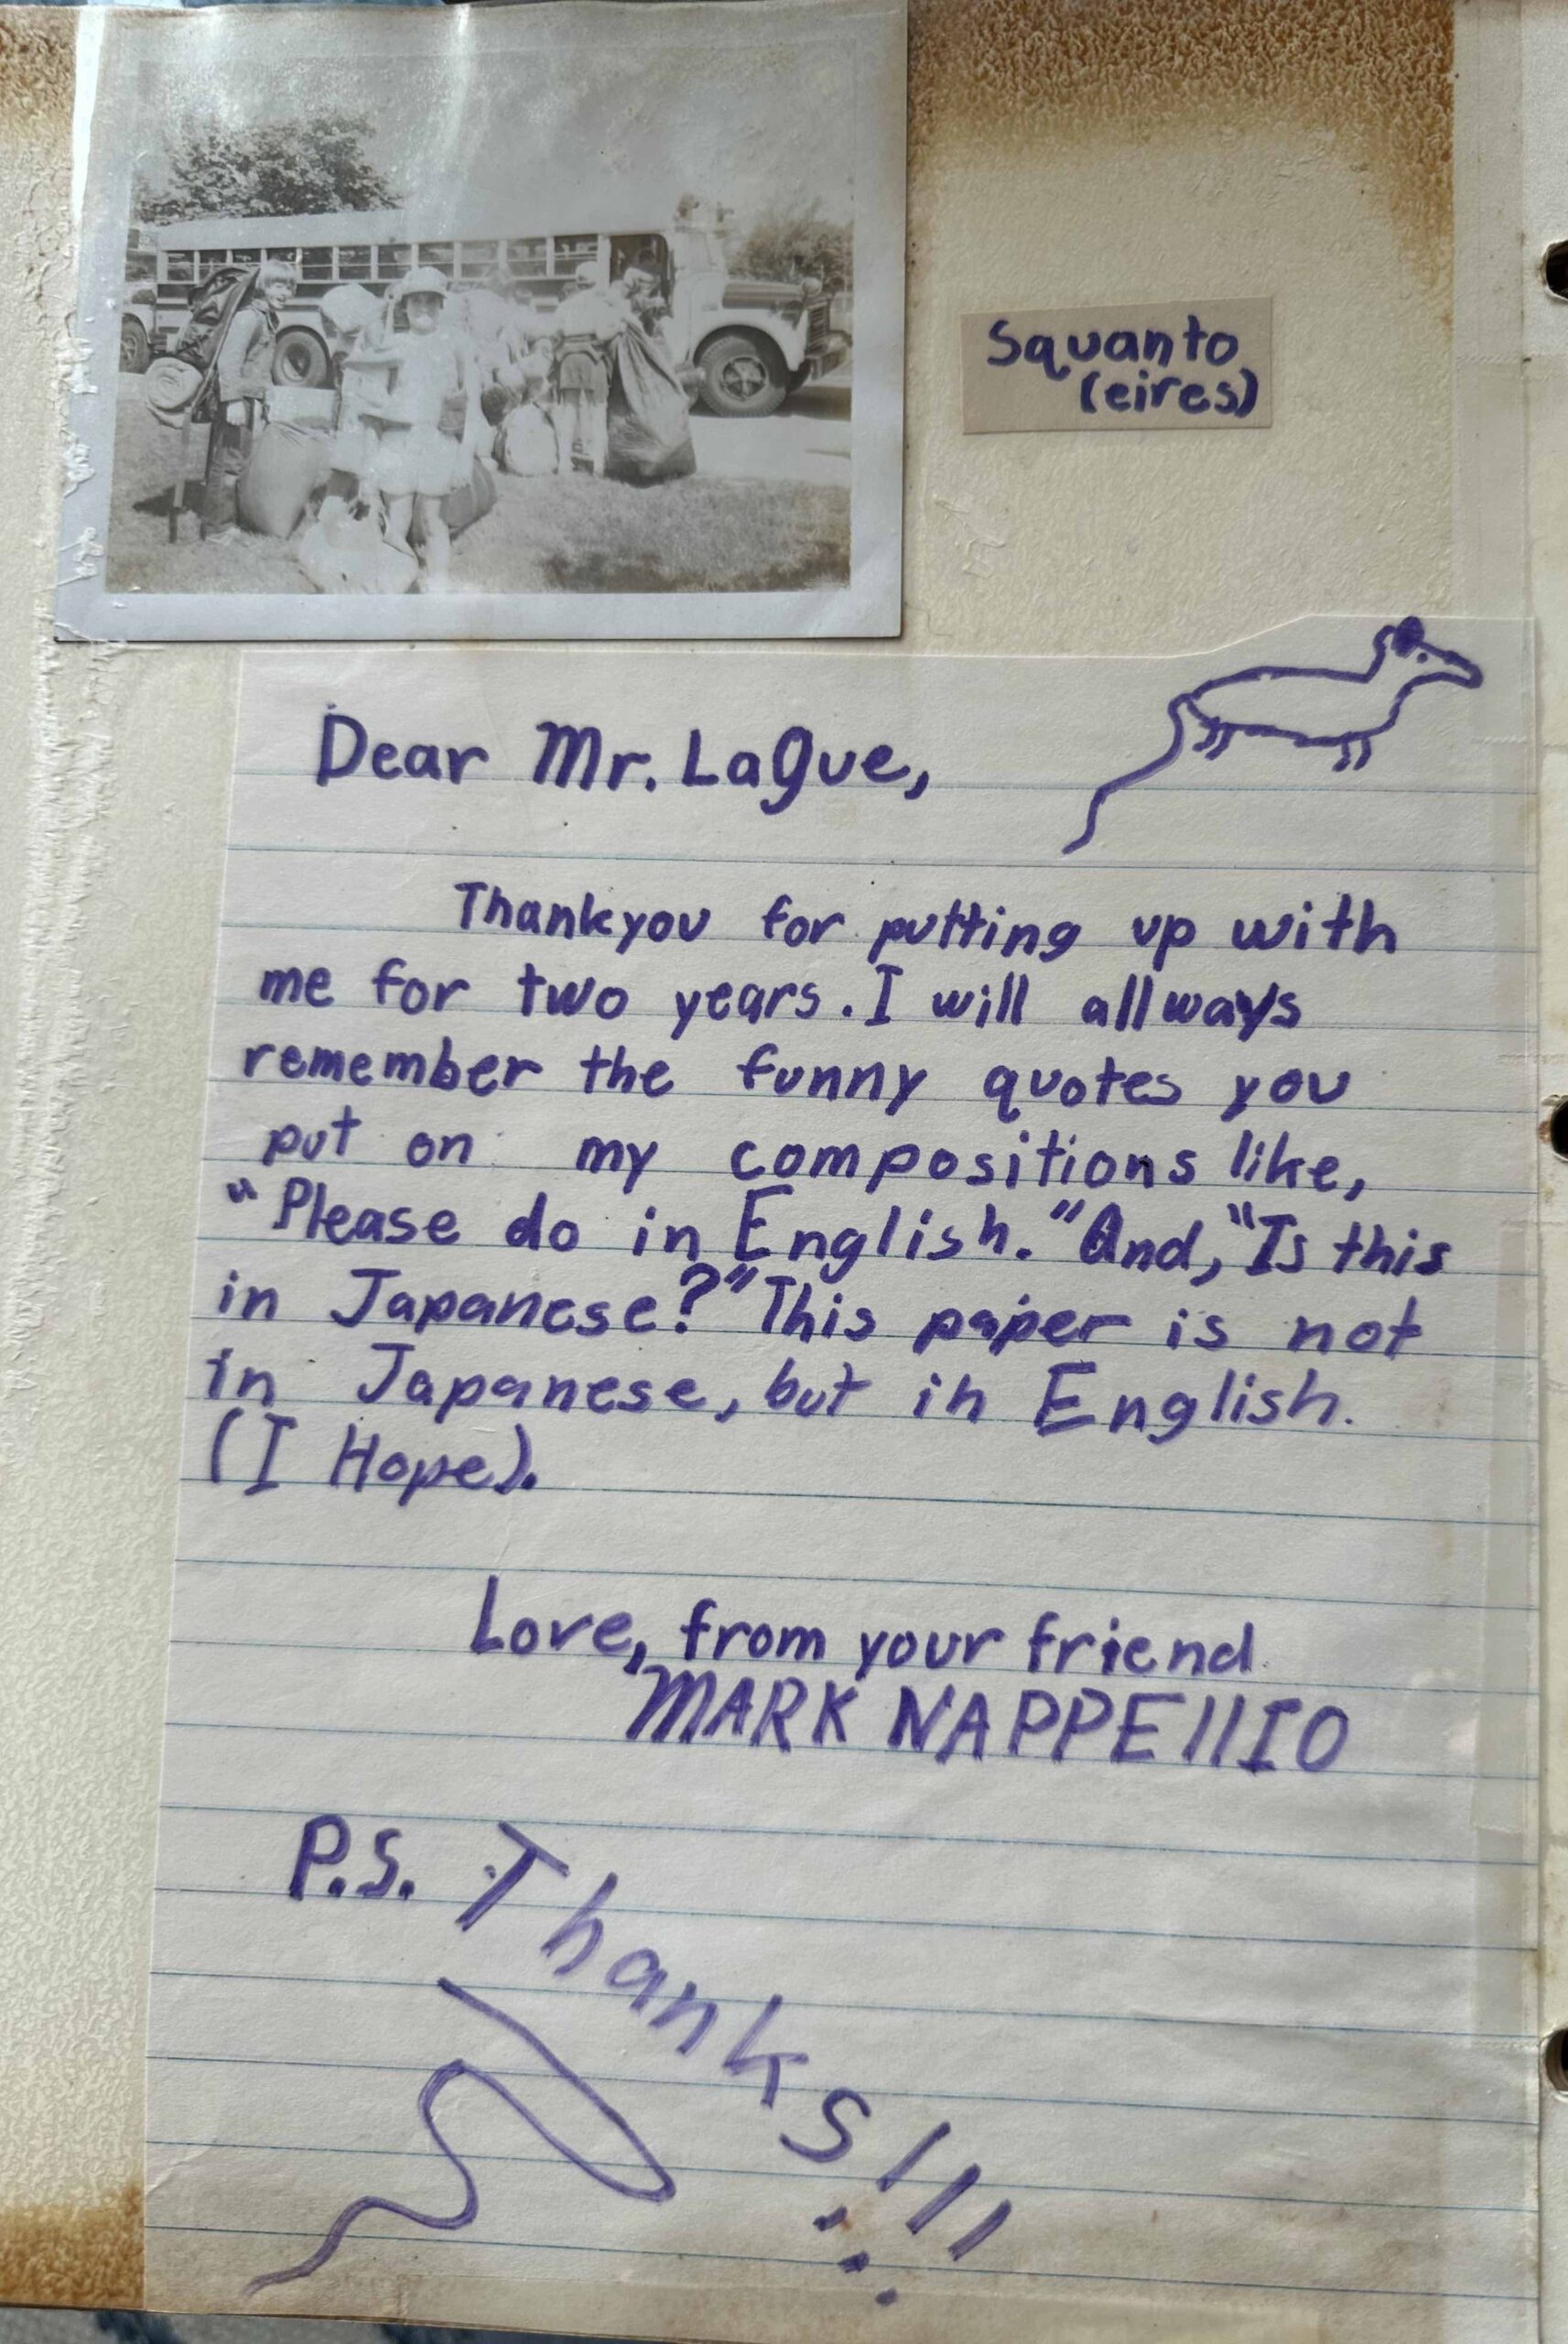 Squanto
(eires)
Dear Mr. Lague,
Thankyou for putting up with
me for two years. I will allways
remember the funny quotes you
put on my compositions like,
"Please do in English." And, "Is this
in Japanese?" This paper is not
in Japanese, but in English.
(I Hope).
Love, from your friend
MARK NAPPEllIO
P.S. Thanks!!!